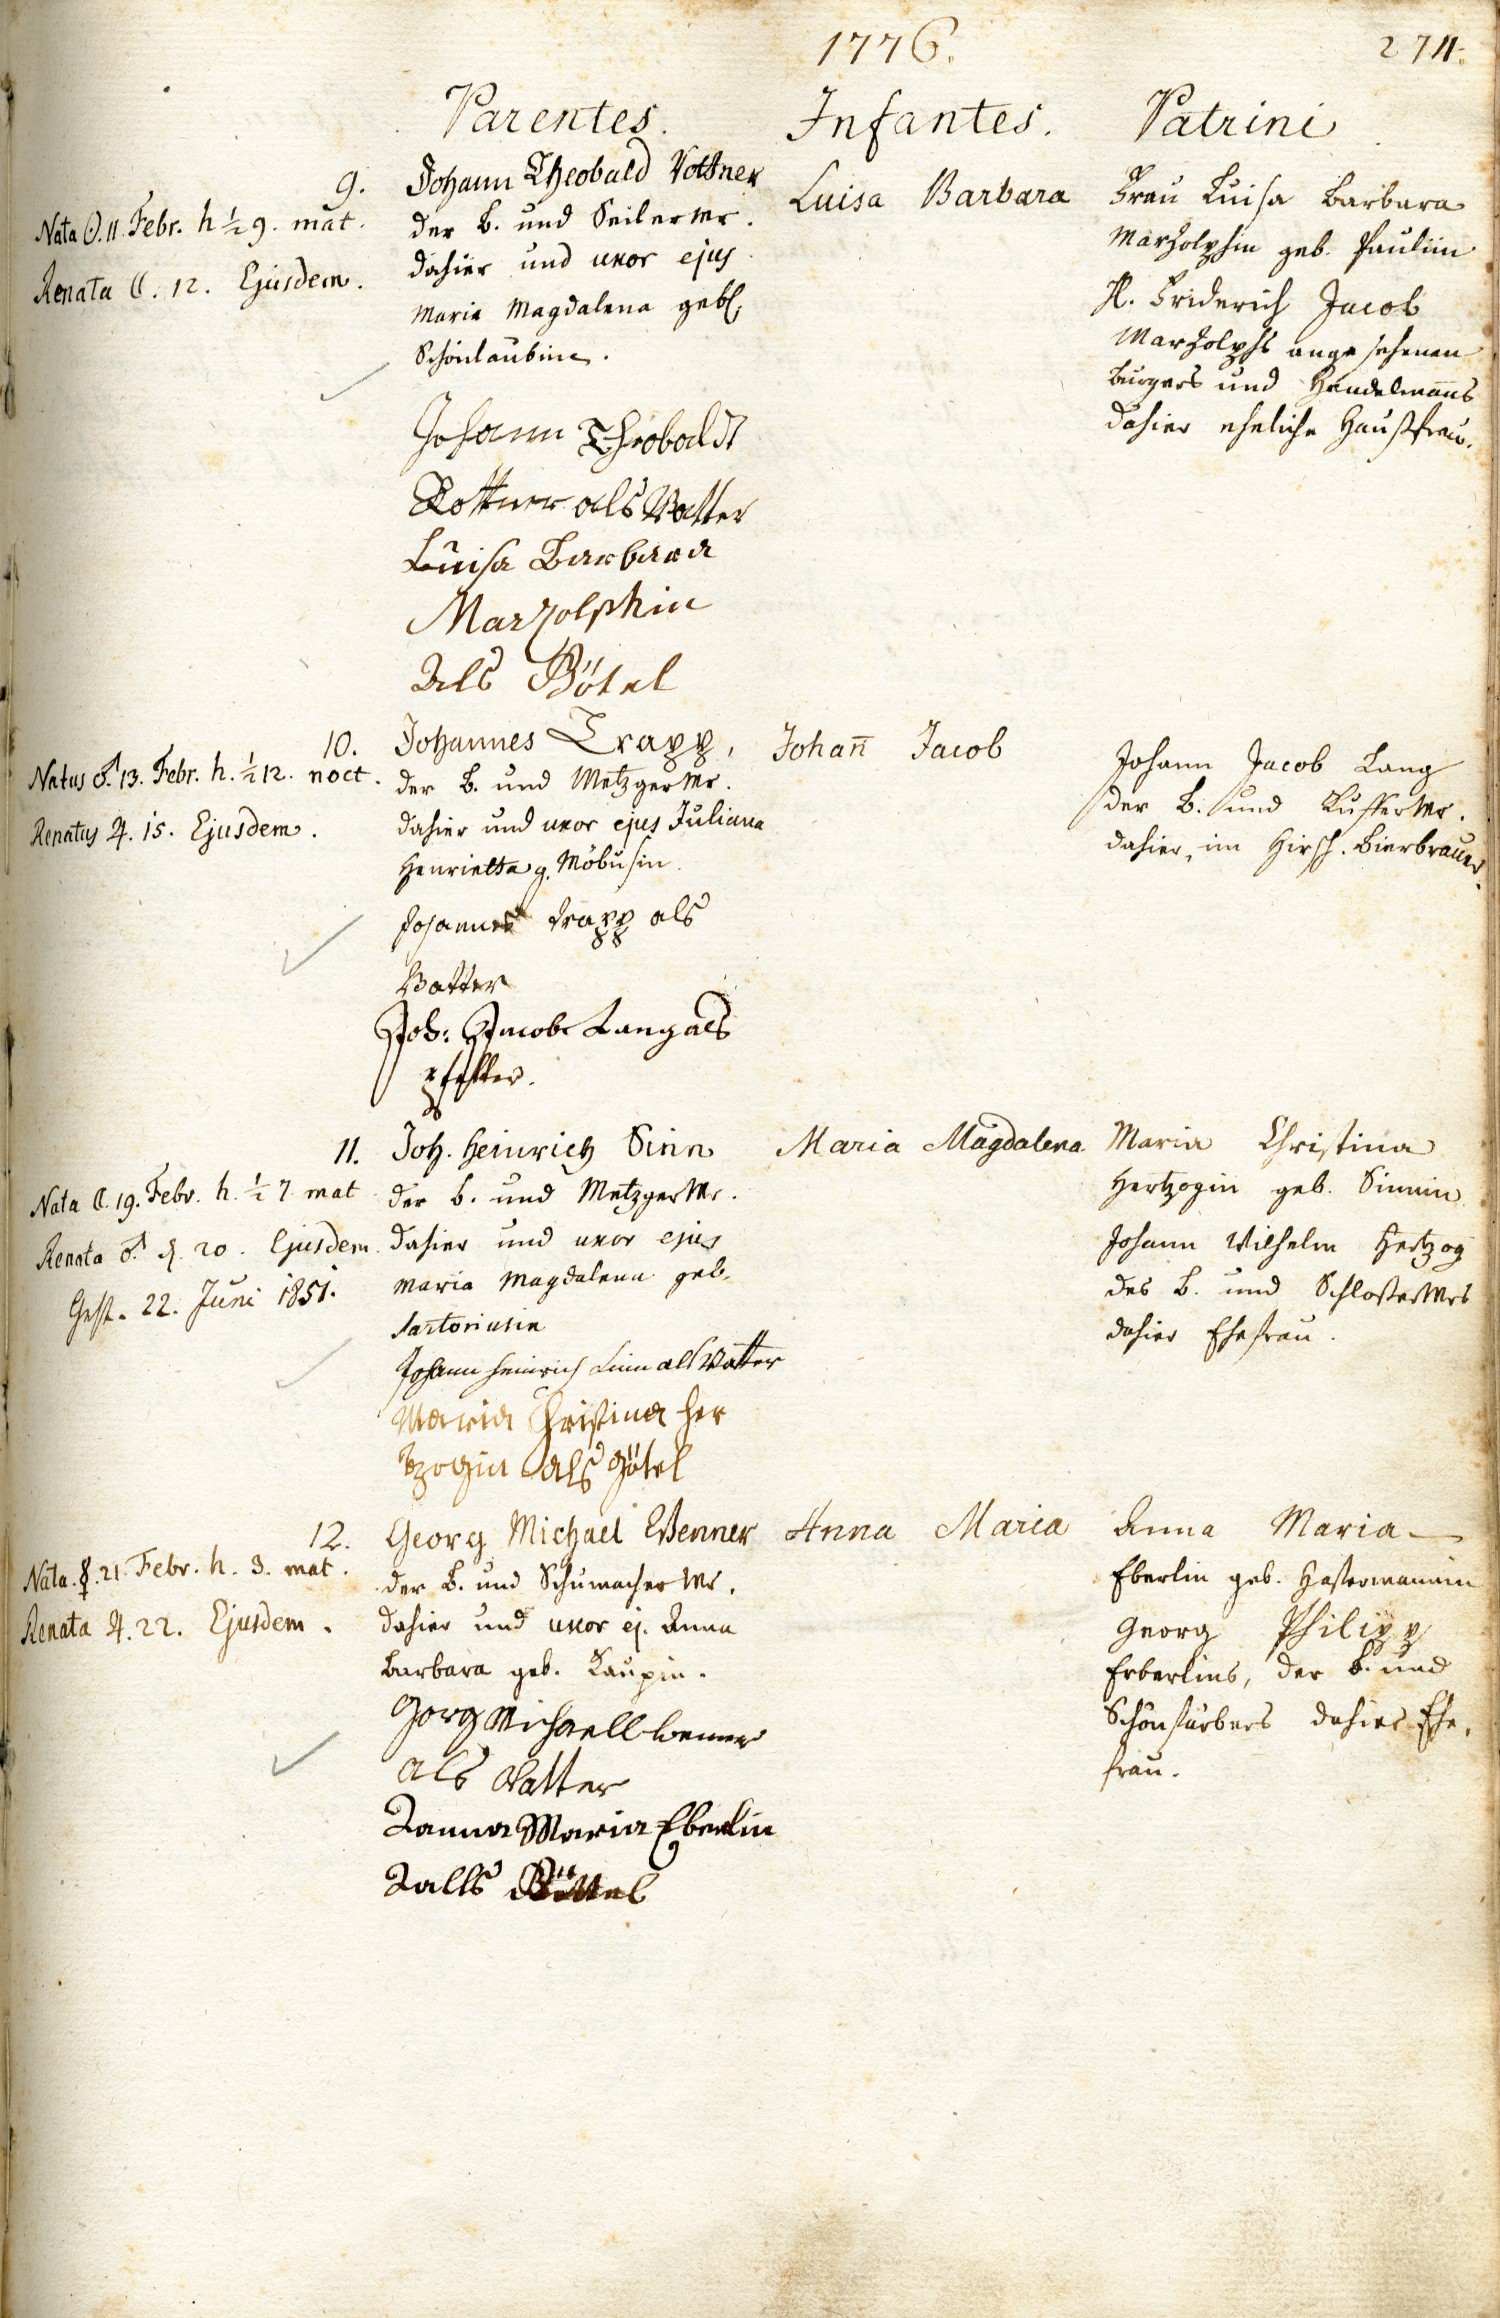 1776.
274.
Parentes.
Infantes.
Patrini
9.
Nata ☉. 11. Febr. h ½ 9. mat.
Renata ☾. 12. Ejusdem.
Johann Theobald Vottner
der B. und Seiler Mr.
dahier und uxor ejus
Maria Magdalena gebl.
Schönlaubin.
Luisa Barbara
Frau Luisa Barbara
Marzolphin geb. Paulin
H. Friderich Jacob
Marzolphs angesehenen
Burgers und Handelmanns
dahier eheliche Haußfrau.
Johann Theobaldt
Vottner als Vatter
Luisa Barbara
Marzolphin
Als Götel
10.
Natus ♂. 13. Febr. h. ½ 12. noct.
Renatus ♃. 15. Ejusdem.
Johannes Trapp,
der B. und Metzger Mr.
dahier und uxor ejus Juliana
Henrietta g. Möbusin.
Johann Jacob
Johann Jacob Lang
der B. und Kuffer Mr.
dahier, im Hirsch. Bierbrauer.
Johannes trapp als
Vatter
Joh: Jacob Lang als
pfetter.
11.
Nata ☾. 19. Febr. h. ½ 7 mat
Renata ♂. d. 20. Ejusdem.
Gest. 22. Juni 1851.
Joh. Heinrich Sinn
der B. und Metzger Mr.
dahier und uxor ejus
Maria Magdalena geb.
Sartoriusin
Maria Magdalena
Maria Christina
Hertzogin geb. Sinnin
Johann Wilhelm Hertzog
des B. und Schlosser Mrs
dahier Ehefrau.
Johann Heinrich Sinn als Vatter
Maria Christina Her
tzogin als Götel
12.
Nata ☿. 21. Febr. h. 3. mat.
Renata ♃. 22. Ejusdem.
Georg Michael Wenner
der B. und Schumacher Mr.
dahier und uxor ej. Anna
Barbara geb. Kaupin.
Anna Maria
Anna Maria
Eberlin geb. Hastermannin
Georg Philipp
Erberlins, der B. und
Schönfärbers dahier Ehe,
frau.
Gorg Michaell wenner
als Vatter
Aanna Maria Eberlin
Aalls Göttel